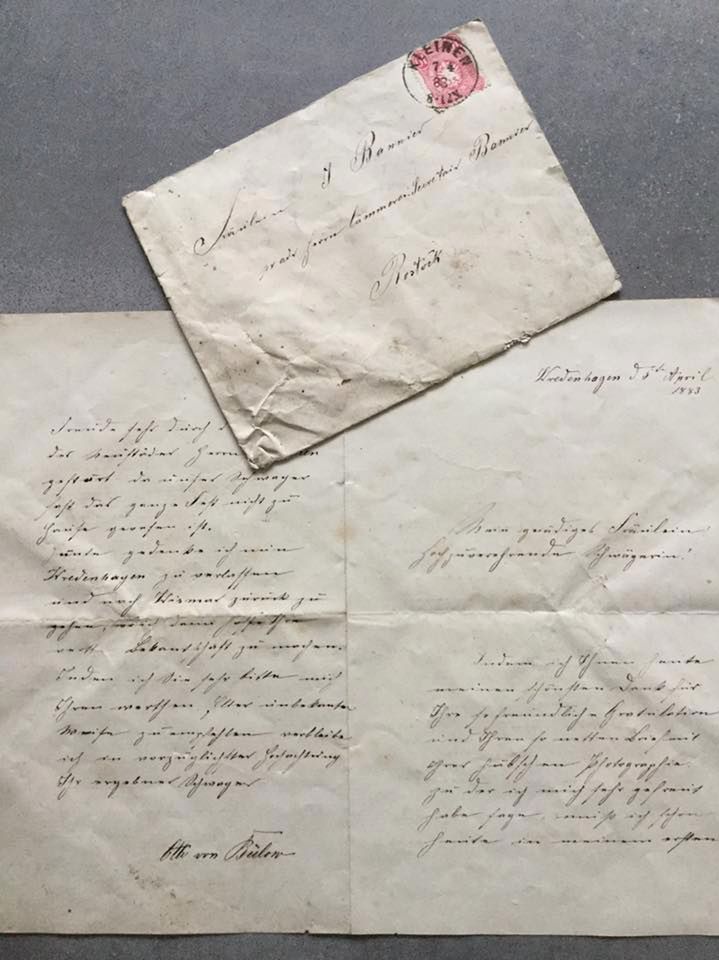 KLEINEN
7 4
83
8-12V.
Fräulein J Bannier
p. adr. Herrn Cämmerei-Secretair Bannier
Rostock
Wredenhagen d 5te April
1883
Mein gnädiges Fräulein!
Hochzuverehrende Schwägerin!
Indem ich Ihnen heute
meinen schönsten Dank für
Ihre so freundliche Gratulation
und Ihren so netten Brief mit
Ihrer hübschen Photographie.
zu der ich mich sehr gefreut
habe sage, muß ich schon
heute in meinem ersten
Freude sehr durch d
des Neustäder Herrn
gestört da unser Schwager
fast das ganze Fest nicht zu
Hause gewesen ist.
Heute gedenke ich mein
Wredenhagen zu verlassen
und nach Wismar zurück zu
gehen, und dann Ihre
werth Bekantschaft zu machen.
Indem ich Sie sehr bitte mich
Ihren werthen Eltern unbekanter
Weise zu empfehlen verbleibe
ich in vorzüglichster Hochachtung
Ihr ergebner Schwager
Otto von Bülow